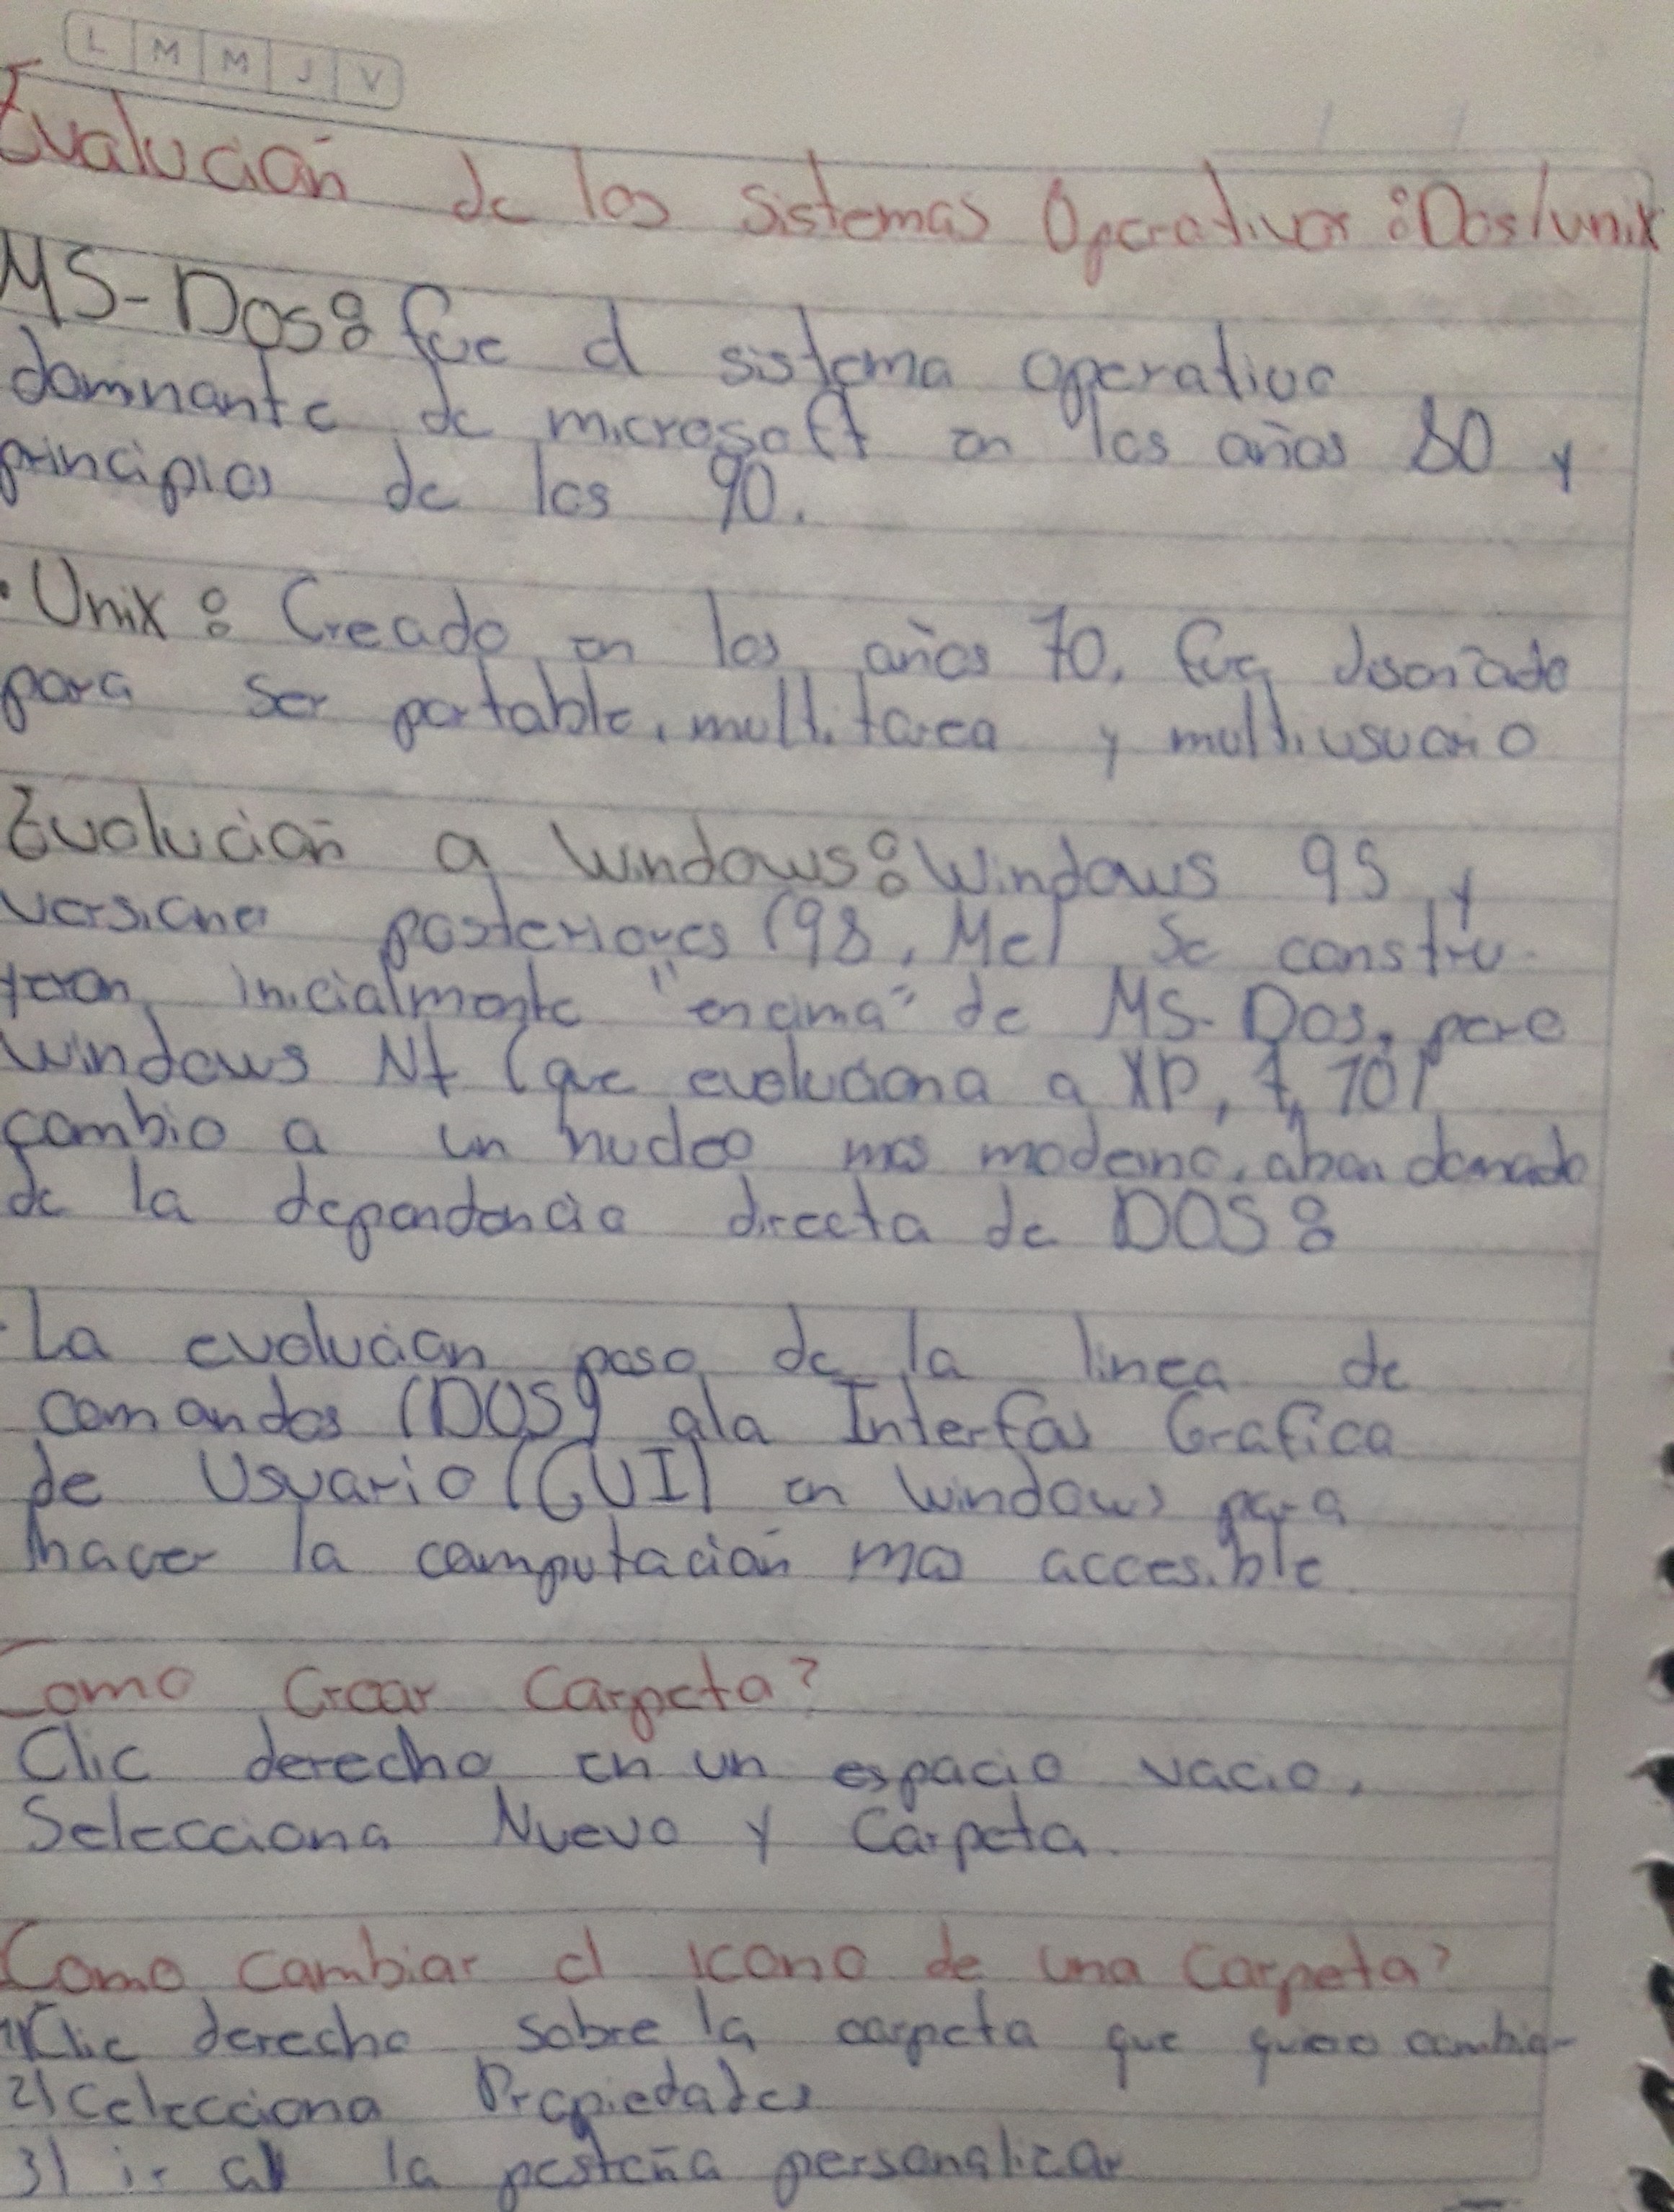 L M M J V
Evalución de los sistemas Operativos: Dos/unix
MS-Dos: fue el sistema operativo
domnante de microsoft en los años 80 y
principios de los 90.
• Unix: Creado en los años 70, fue diseñado
para ser portable, multitarea y multiusuario
Evolución a Windows: Windows 95 y
versiones posteriores (98, Me) se constru-
yeron inicialmente "encima" de MS-Dos, pero
windows Nt (que evoluciona a XP, 7, 10)
cambio a un nucleo mas moderno, abandonado
de la dependencia directa de DOS:
· La evolución paso de la linea de
comandos (DOS) ala Interfas Grafica
de Usuario (GUI) en windows para
hacer la computación mas accesible
Como Crear Carpeta?
Clic derecho en un espacio vacio,
Selecciona Nuevo y Carpeta.
Como cambiar el icono de una Carpeta?
1) Clic derecho sobre la carpeta que quiero cambiar
2) Celecciona Propiedades
3) ir a la pestaña personalizar